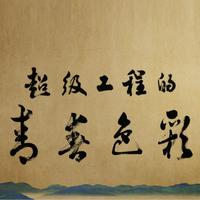 超级工程的
青春色彩